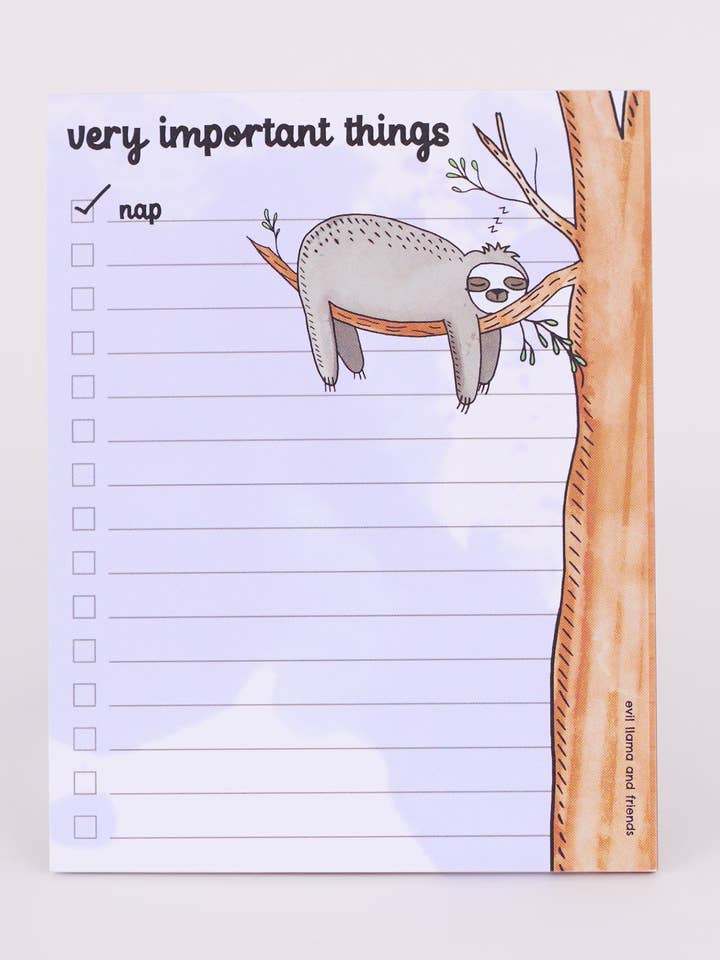 very important things
nap
z z z
evil llama and friends